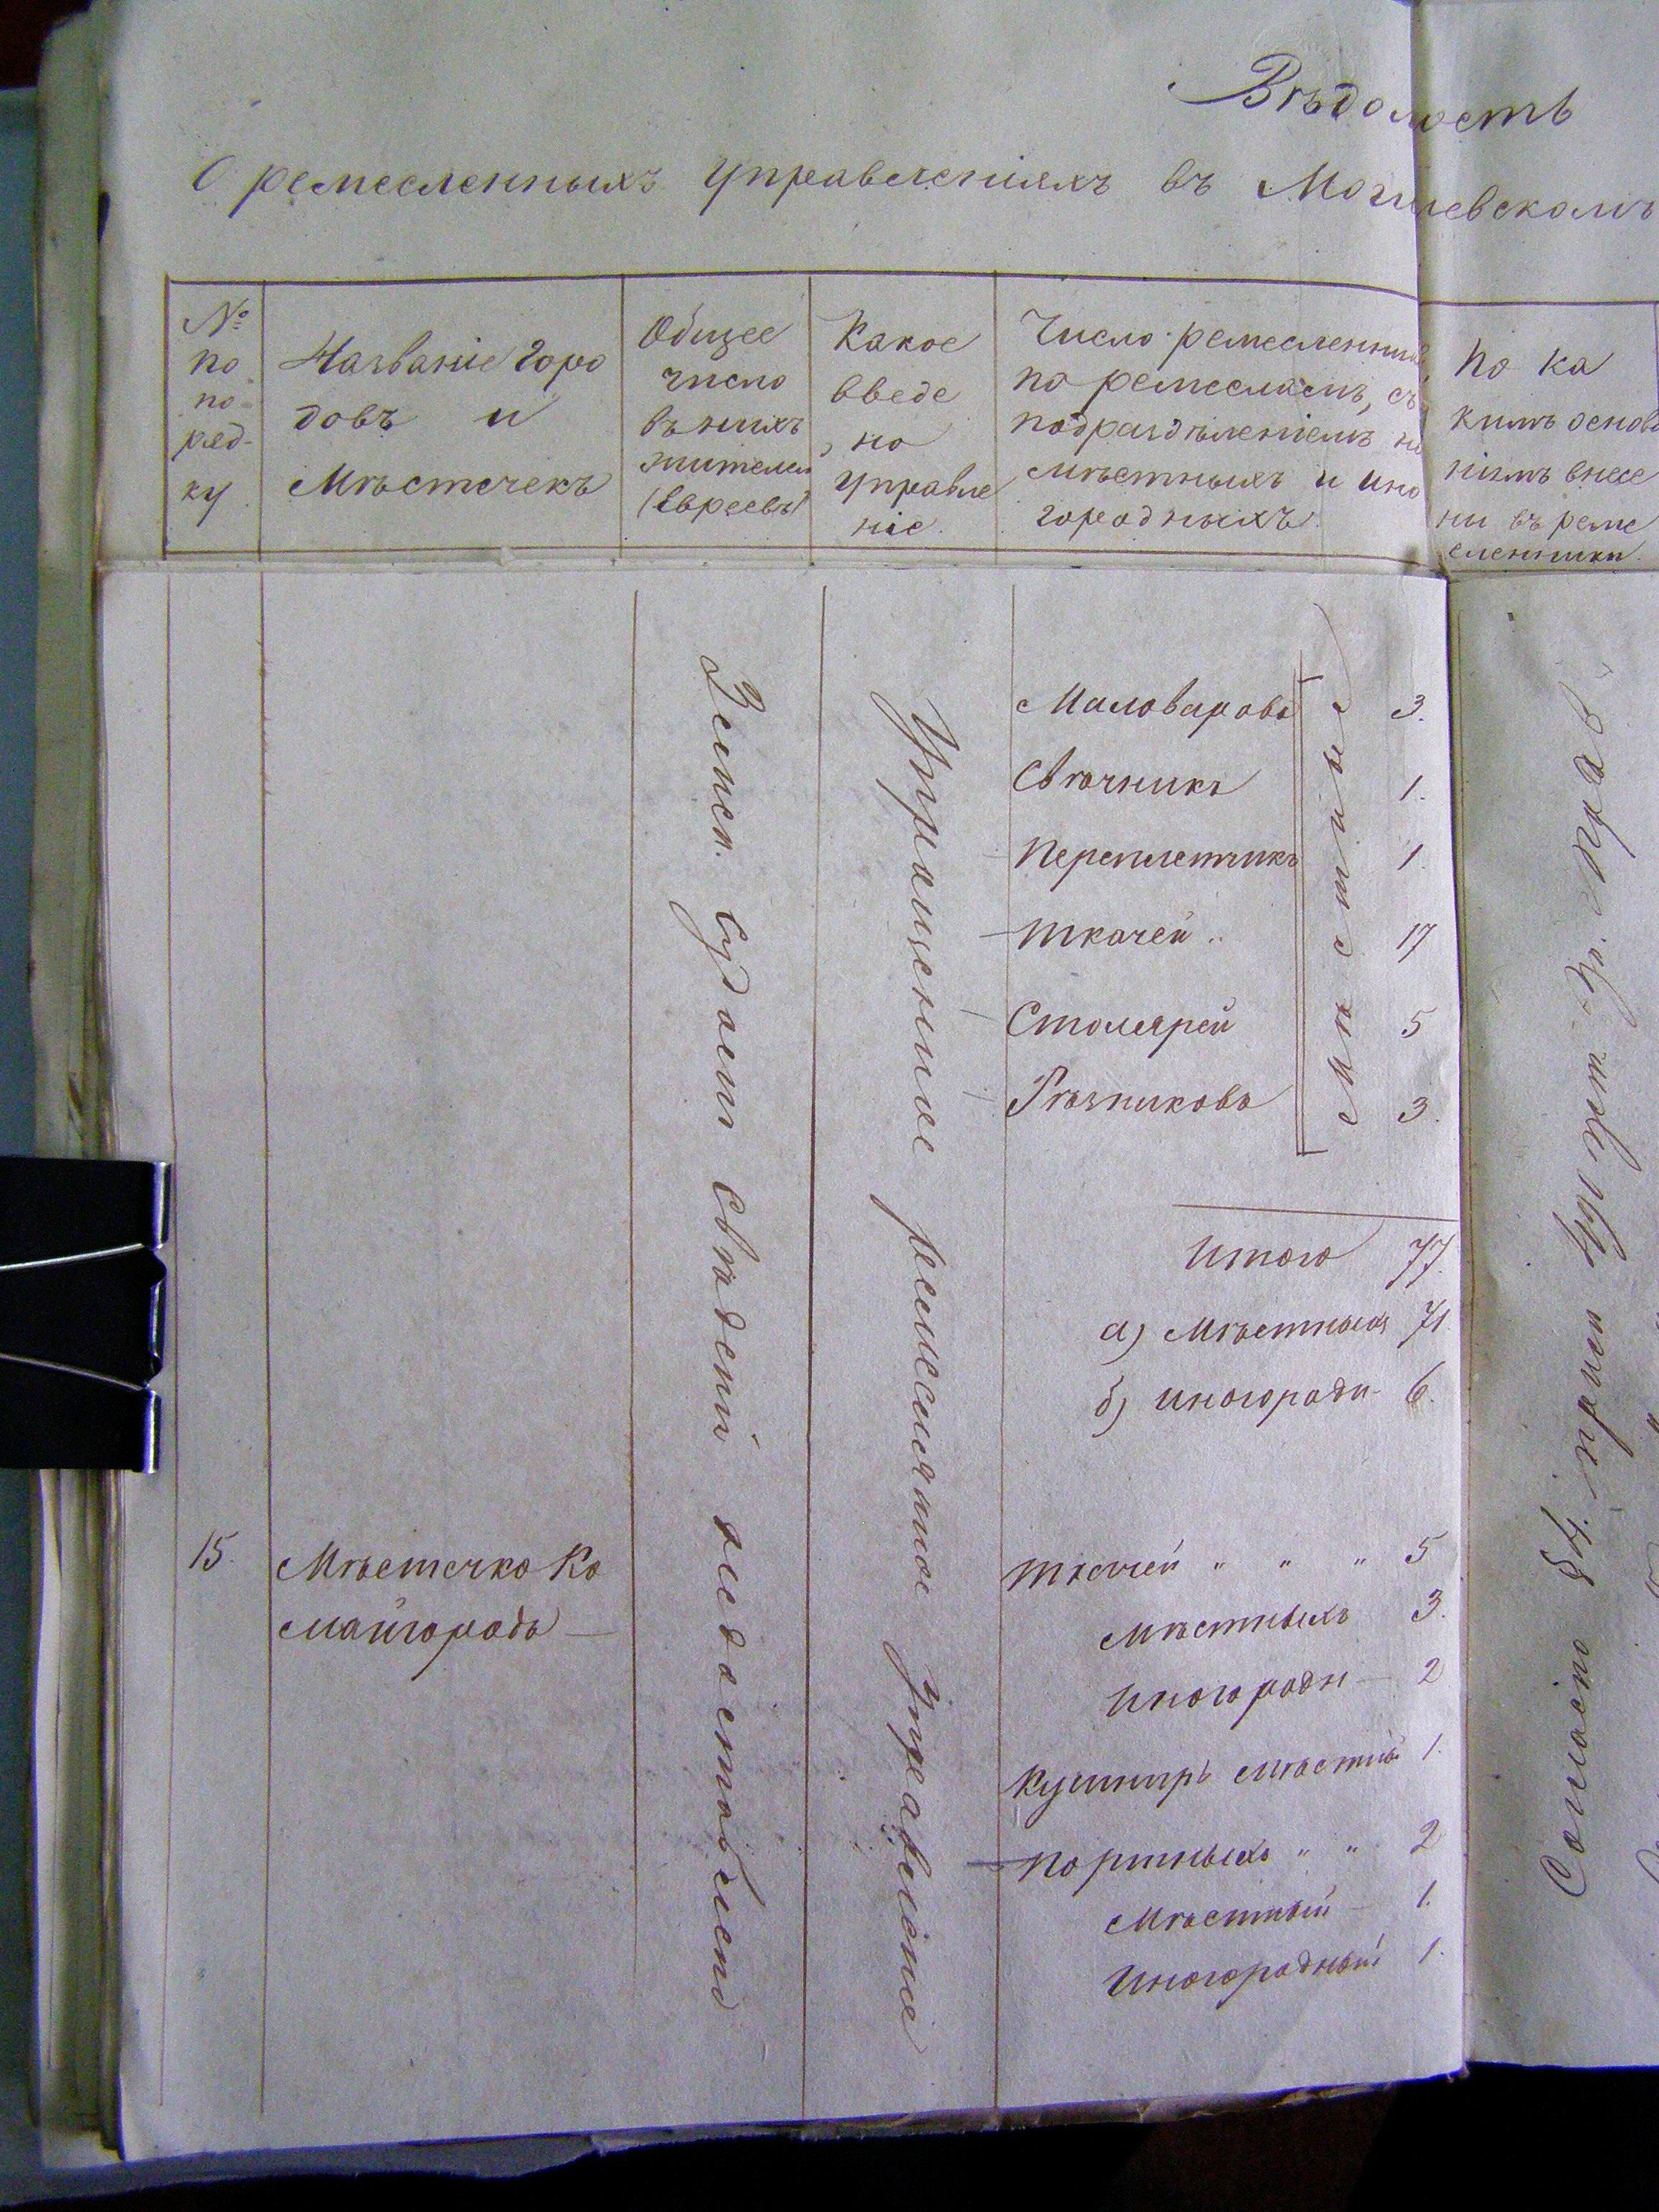 Вѣдомость
О ремесленныхъ управленіяхъ въ Могилевскомъ
№
по
по-
ряд-
ку
Названіе горо
довъ и
Мѣстечекъ
Общее
число
въ нихъ
жителей
(Евреевъ)
Какое
введе
но
управле
ніе.
Число ремесленник
по ремесламъ, съ
подраздѣленіемъ на
мѣстныхъ и ино
городныхъ.
По ка
кимъ основа
ніямъ внесе
ны въ реме
сленники.
Земск. Судомъ свѣденій недоставлено
Упрощенное ремесленное управленіе
Мѣстные
Маловаровъ 3.
Свѣчникъ 1.
Переплетчикъ 1.
Ткачей „ 17
Столярей 5
Рѣзниковъ 3.
Итого 77.
а) Мѣстныхъ 71.
б) иногородн- 6.
15.
Мѣстечко Ко
майгородъ —
Ткачей „ „ „ 5
мѣстныхъ 3.
Иногородн — 2
Кушниръ мѣстный 1.
Портныхъ „ „ 2
Мѣстный — 1.
Иногородный 1.
Согласно § 4. прим
Уст. Пр. Прав